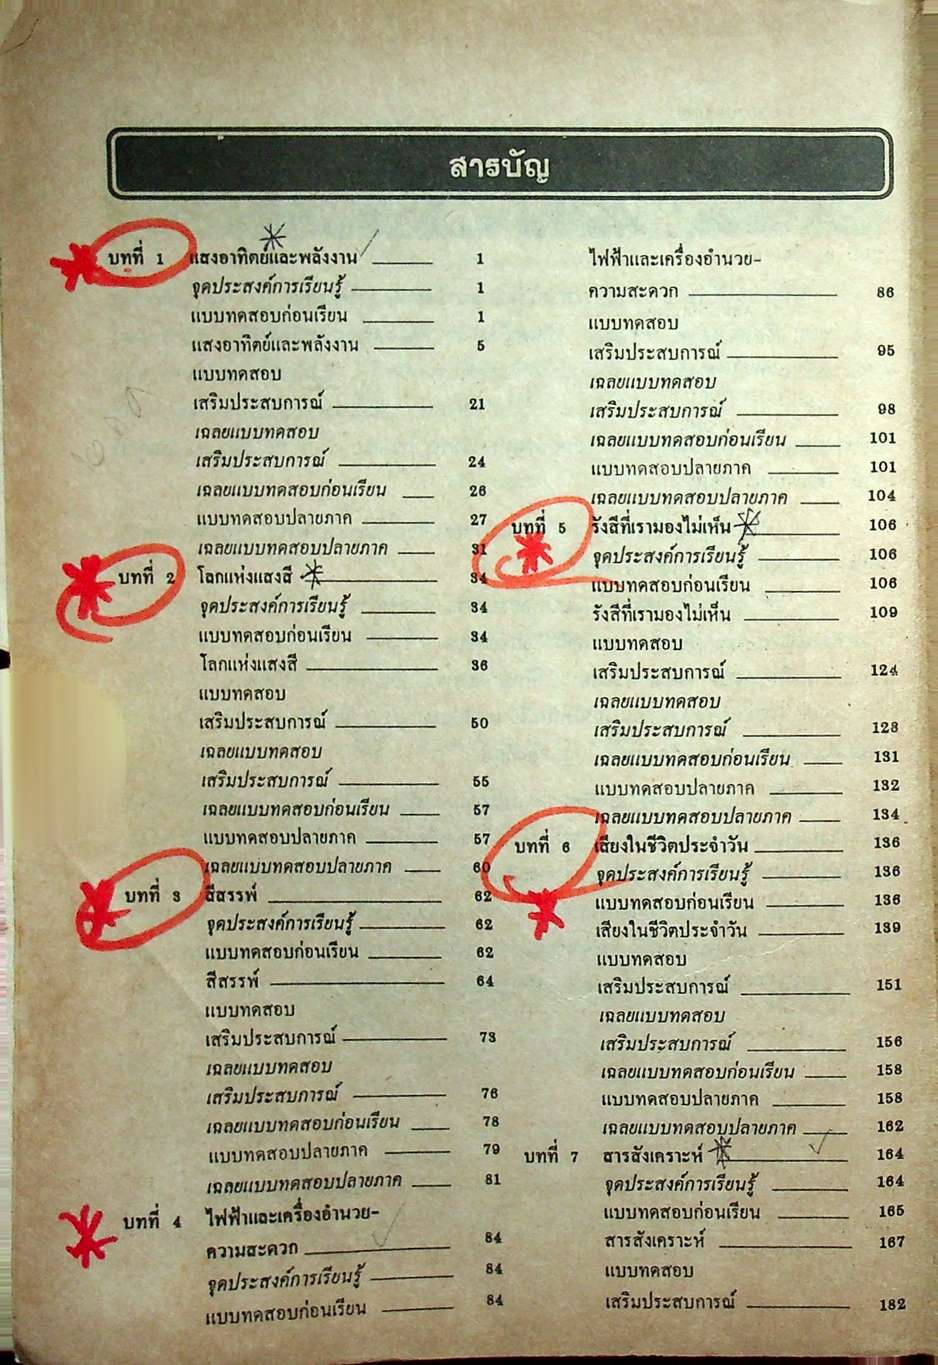 สารบัญ
บทที่ 1 แสงอาทิตย์และพลังงาน 1
จุดประสงค์การเรียนรู้ 1
แบบทดสอบก่อนเรียน 1
แสงอาทิตย์และพลังงาน 5
แบบทดสอบ
เสริมประสบการณ์ 21
เฉลยแบบทดสอบ
เสริมประสบการณ์ 24
เฉลยแบบทดสอบก่อนเรียน 26
แบบทดสอบปลายภาค 27
เฉลยแบบทดสอบปลายภาค 31
บทที่ 2 โลกแห่งแสงสี 34
จุดประสงค์การเรียนรู้ 34
แบบทดสอบก่อนเรียน 34
โลกแห่งแสงสี 36
แบบทดสอบ
เสริมประสบการณ์ 50
เฉลยแบบทดสอบ
เสริมประสบการณ์ 55
เฉลยแบบทดสอบก่อนเรียน 57
แบบทดสอบปลายภาค 57
เฉลยแบบทดสอบปลายภาค 60
บทที่ 3 สีสรรพ์ 62
จุดประสงค์การเรียนรู้ 62
แบบทดสอบก่อนเรียน 62
สีสรรพ์ 64
แบบทดสอบ
เสริมประสบการณ์ 73
เฉลยแบบทดสอบ
เสริมประสบการณ์ 76
เฉลยแบบทดสอบก่อนเรียน 78
แบบทดสอบปลายภาค 79
เฉลยแบบทดสอบปลายภาค 81
บทที่ 4 ไฟฟ้าและเครื่องอำนวย-
ความสะดวก 84
จุดประสงค์การเรียนรู้ 84
แบบทดสอบก่อนเรียน 84
ไฟฟ้าและเครื่องอำนวย-
ความสะดวก 86
แบบทดสอบ
เสริมประสบการณ์ 95
เฉลยแบบทดสอบ
เสริมประสบการณ์ 98
เฉลยแบบทดสอบก่อนเรียน 101
แบบทดสอบปลายภาค 101
เฉลยแบบทดสอบปลายภาค 104
บทที่ 5 รังสีที่เรามองไม่เห็น 106
จุดประสงค์การเรียนรู้ 106
แบบทดสอบก่อนเรียน 106
รังสีที่เรามองไม่เห็น 109
แบบทดสอบ
เสริมประสบการณ์ 124
เฉลยแบบทดสอบ
เสริมประสบการณ์ 128
เฉลยแบบทดสอบก่อนเรียน 131
แบบทดสอบปลายภาค 132
เฉลยแบบทดสอบปลายภาค 134
บทที่ 6 เสียงในชีวิตประจำวัน 136
จุดประสงค์การเรียนรู้ 136
แบบทดสอบก่อนเรียน 136
เสียงในชีวิตประจำวัน 139
แบบทดสอบ
เสริมประสบการณ์ 151
เฉลยแบบทดสอบ
เสริมประสบการณ์ 156
เฉลยแบบทดสอบก่อนเรียน 158
แบบทดสอบปลายภาค 158
เฉลยแบบทดสอบปลายภาค 162
บทที่ 7 สารสังเคราะห์ 164
จุดประสงค์การเรียนรู้ 164
แบบทดสอบก่อนเรียน 165
สารสังเคราะห์ 167
แบบทดสอบ
เสริมประสบการณ์ 182